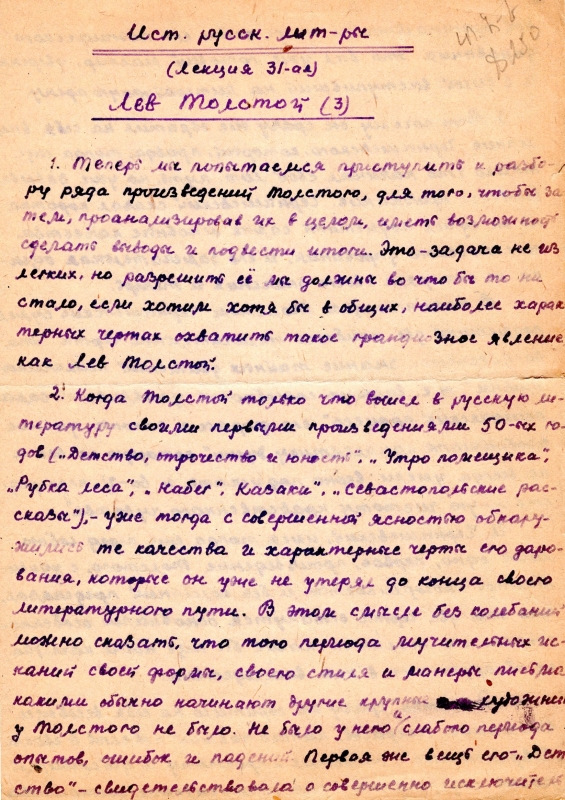 Ист. русск. лит-ры
(Лекция 31-ая)
Лев Толстой (3)
1. Теперь мы попытаемся приступить к разбо-
ру ряда произведений Толстого, для того, чтобы за
тем, проанализировав их в целом, иметь возможность
сделать выводы и подвести итоги. Это-задача не из
легких, но разрешить её мы должны во что бы то ни
стало, если хотим хотя бы в общих, наиболее харак
терных чертах охватить такое грандиозное явление
как Лев Толстой.
2. Когда Толстой только что вошел в русскую ли-
тературу своими первыми произведениями 50-ых го-
дов („Детство, отрочество и юность", „Утро помещика",
„Рубка леса", „Набег", Казаки", „Севастопольские рас-
сказы"),- уже тогда с совершенной ясностью обнару-
жились те качества и характерные черты его даро-
вания, которые он уже не утерял до конца своего
литературного пути. В этом смысле без колебаний
можно сказать, что того периода мучительных ис-
каний своей формы, своего стиля и манеры письма
какими обычно начинают другие крупные художники
у Толстого не было. Не было у него слабого периода
опытов, ошибок и падений. Первая же вещь его-„Дет
ство"- свидетельствовала о совершенно исключитель